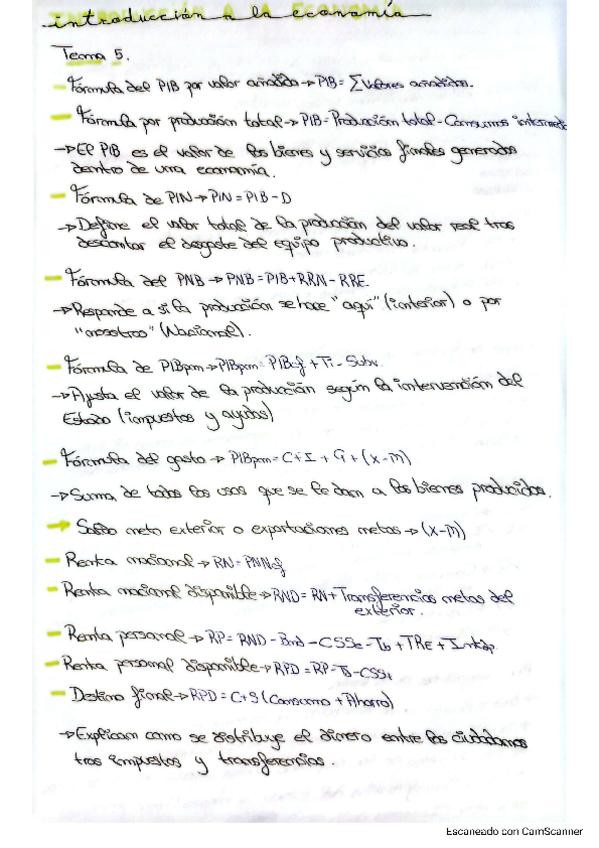 introducción a la economía
Tema 5.
- Fórmula del PIB por valor añadido → PIB = ∑Valores añadidos.
- Fórmula por producción total → PIB = Producción total - Consumos intermed
→ El PIB es el valor de los bienes y servicios finales generados
dentro de una economía.
- Fórmula de PIN → PIN = PIB - D
→ Define el valor total de la producción del valor real tras
descontar el desgaste del equipo productivo.
- Fórmula del PNB → PNB = PIB + RRN - RRE.
→ Responde a si la producción se hace "aquí" (interior) o por
"nosotros" (Nacional).
- Fórmula de PIBpm → PIBpm = PIBcf + Ti - Subv.
→ Ajusta el valor de la producción según la intervención del
Estado (impuestos y ayudas)
- Fórmula del gasto → PIBpm = C + I + G + (X-M)
→ Suma de todos los usos que se le dam a los bienes producidos.
→ Saldo neto exterior o exportaciones netas → (X-M)
- Renta nacional → RN = PNNcf
- Renta nacional disponible → RND = RN + Transferencias netas del
exterior.
- Renta personal → RP = RND - Bnd - CSSe - Tb + TRe +
- Renta personal disponible → RPD = RP - Td - CSSt
- Destino final → RPD = C + S (Consumo + Ahorro)
→ Explicam como se distribuye el dinero entre los ciudadanos
tras impuestos y transferencias.
Escaneado con CamScanner